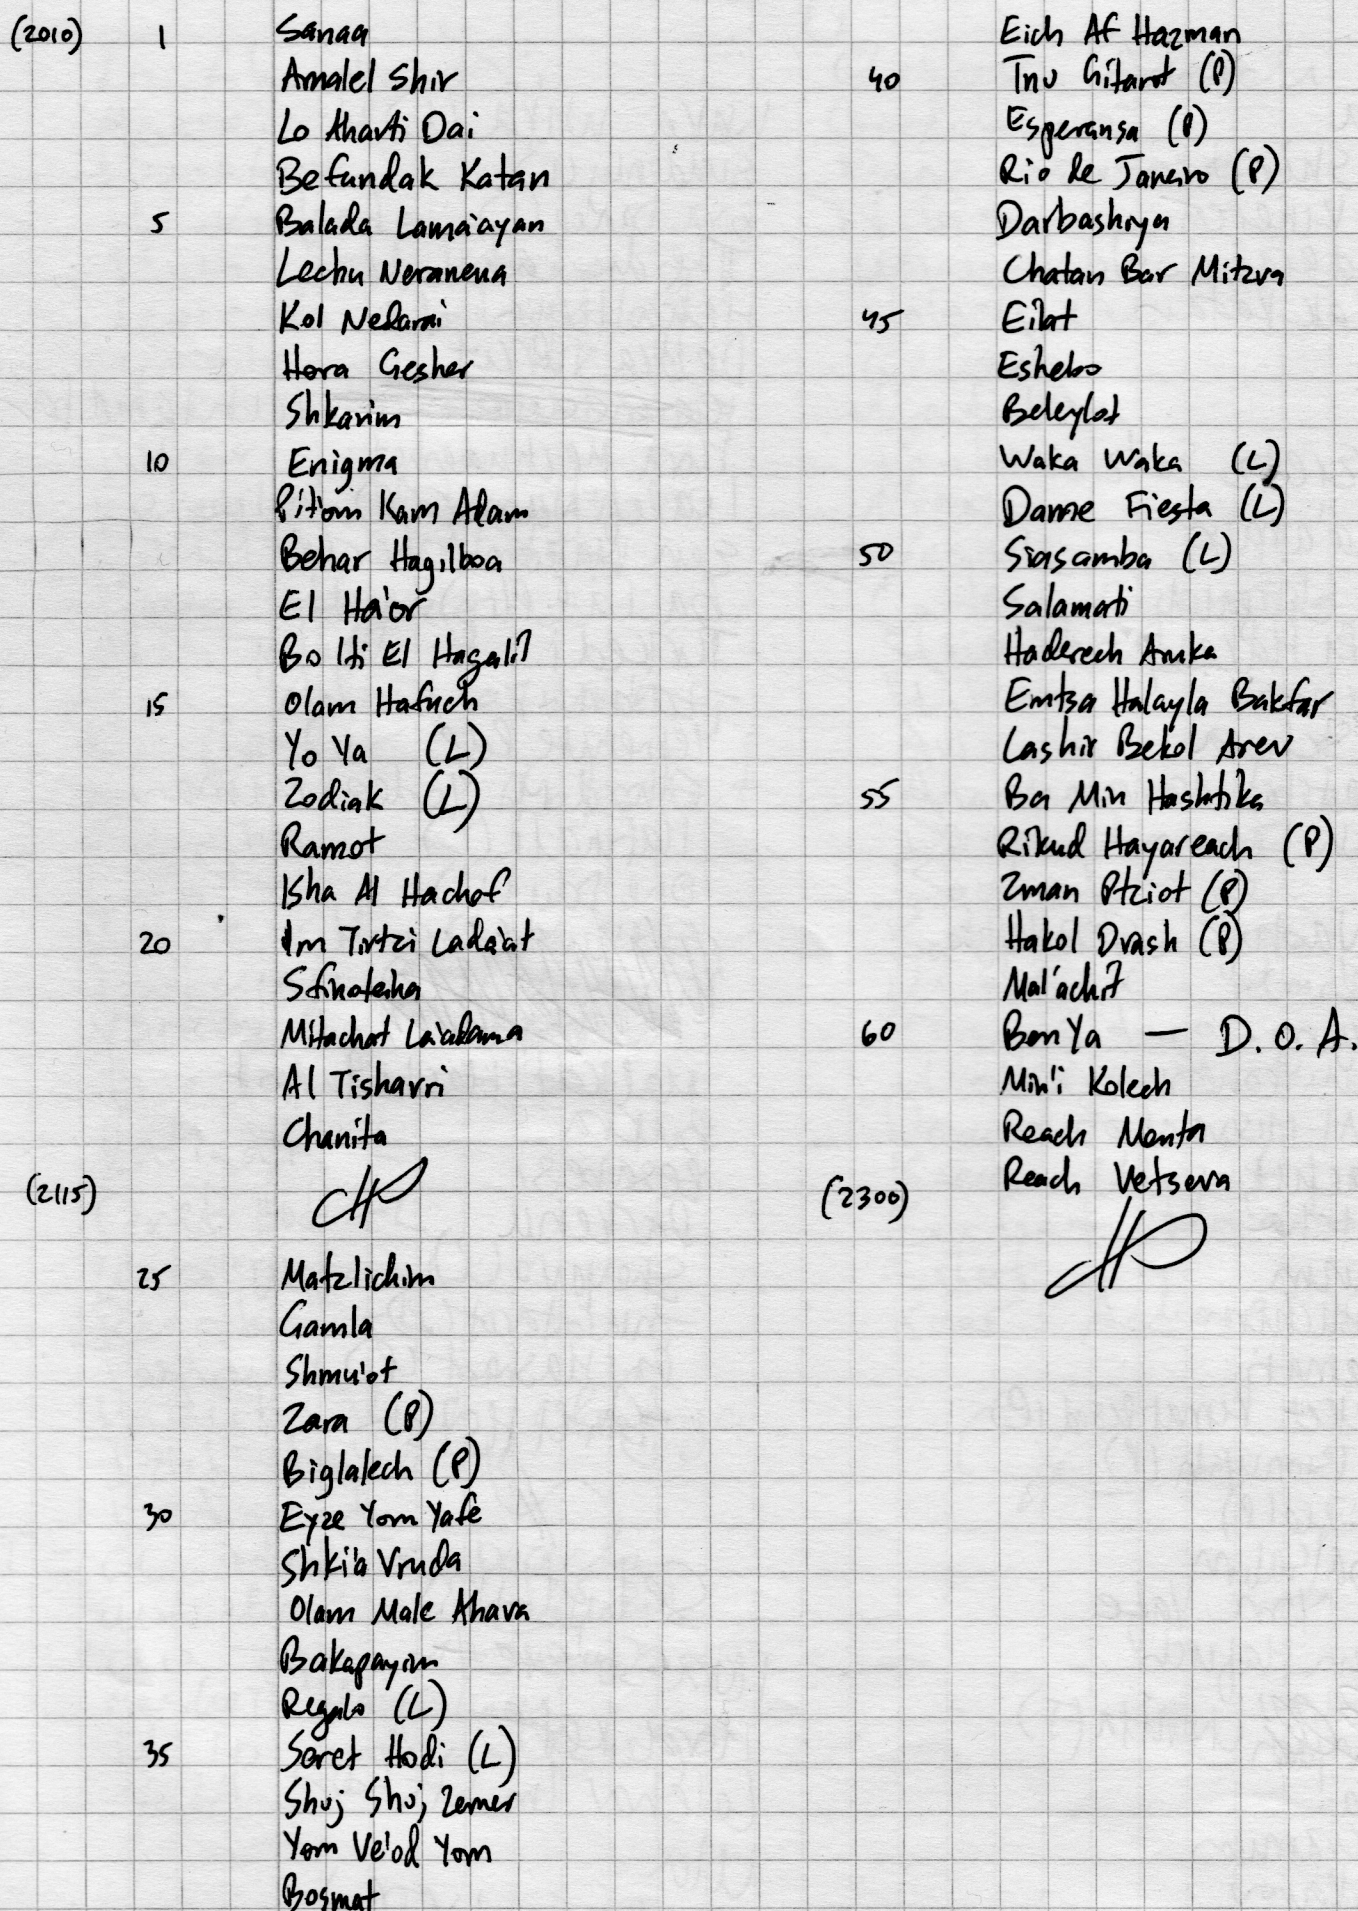 (2010) 1 Sanaa
Amalel Shir
Lo Aharti Dai
Befundak Katan
5 Balada Lama'ayan
Lechu Neranena
Kol Nedarai
Hora Gesher
Shkarim
10 Enigma
Pit'om Kam Adam
Behar Hagilboa
El Ha'or
Bo Iti El Hagalil
15 Olam Hafuch
Yo Ya (L)
Zodiak (L)
Ramot
Isha Al Hachof
20 Im Tirtzi Lada'at
Sfinoteiha
Mitachat La'adama
Al Tisharri
Chanita
(2115)
25 Matzlichim
Gamla
Shmu'ot
Zara (P)
Biglalech (P)
30 Eyze Yom Yafe
Shki'a Vruda
Olam Male Ahava
Bakapayim
Regalo (L)
35 Seret Hodi (L)
Shuj Shuj Zemer
Yom Ve'od Yom
Bosmat
Eich Af Hazman
40 Tnu Gitarot (P)
Esperansa (P)
Rio De Janeiro (P)
Darbashiya
Chatan Bar Mitzva
45 Eilat
Eshebo
Beleylot
Waka Waka (L)
Dame Fiesta (L)
50 Siasamba (L)
Salamati
Haderech Aruka
Emtsa Halayla Bakfar
Lashir Bekol Arev
55 Ba Min Hashtika
Rikud Hayareach (P)
Zman Ptziot (P)
Hakol Drash (P)
Mal'achit
60 Bon Ya — D.O.A.
Min'i Kolech
Reach Menta
Reach Vetseva
(2300)